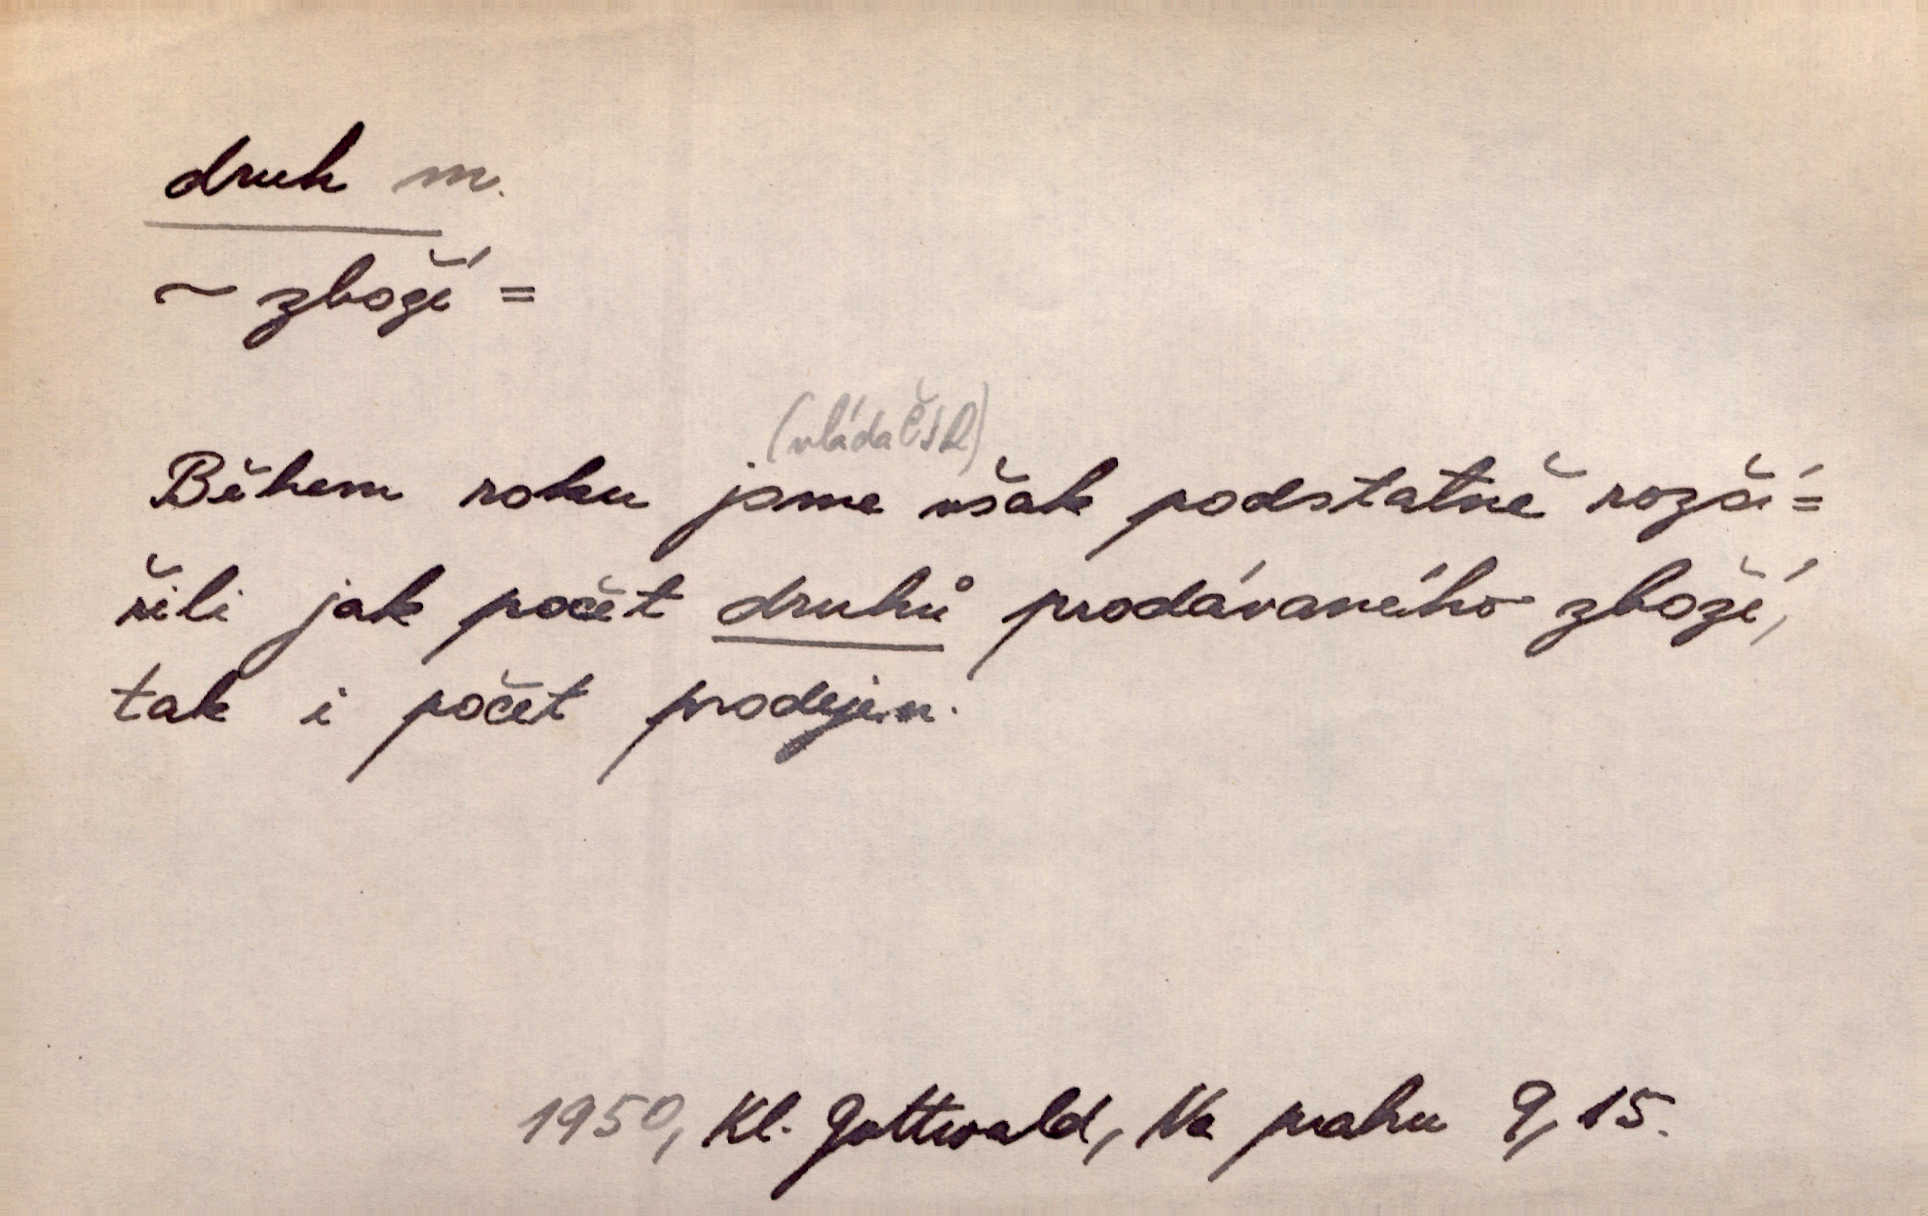 druh m.
~ zboží =
(vláda ČSR)
Během roku jsme však podstatně rozší=
řili jak počet druhů prodávaného zboží,
tak i počet prodejen.
1950, Kl. Gottwald, Na prahu 9, 15.